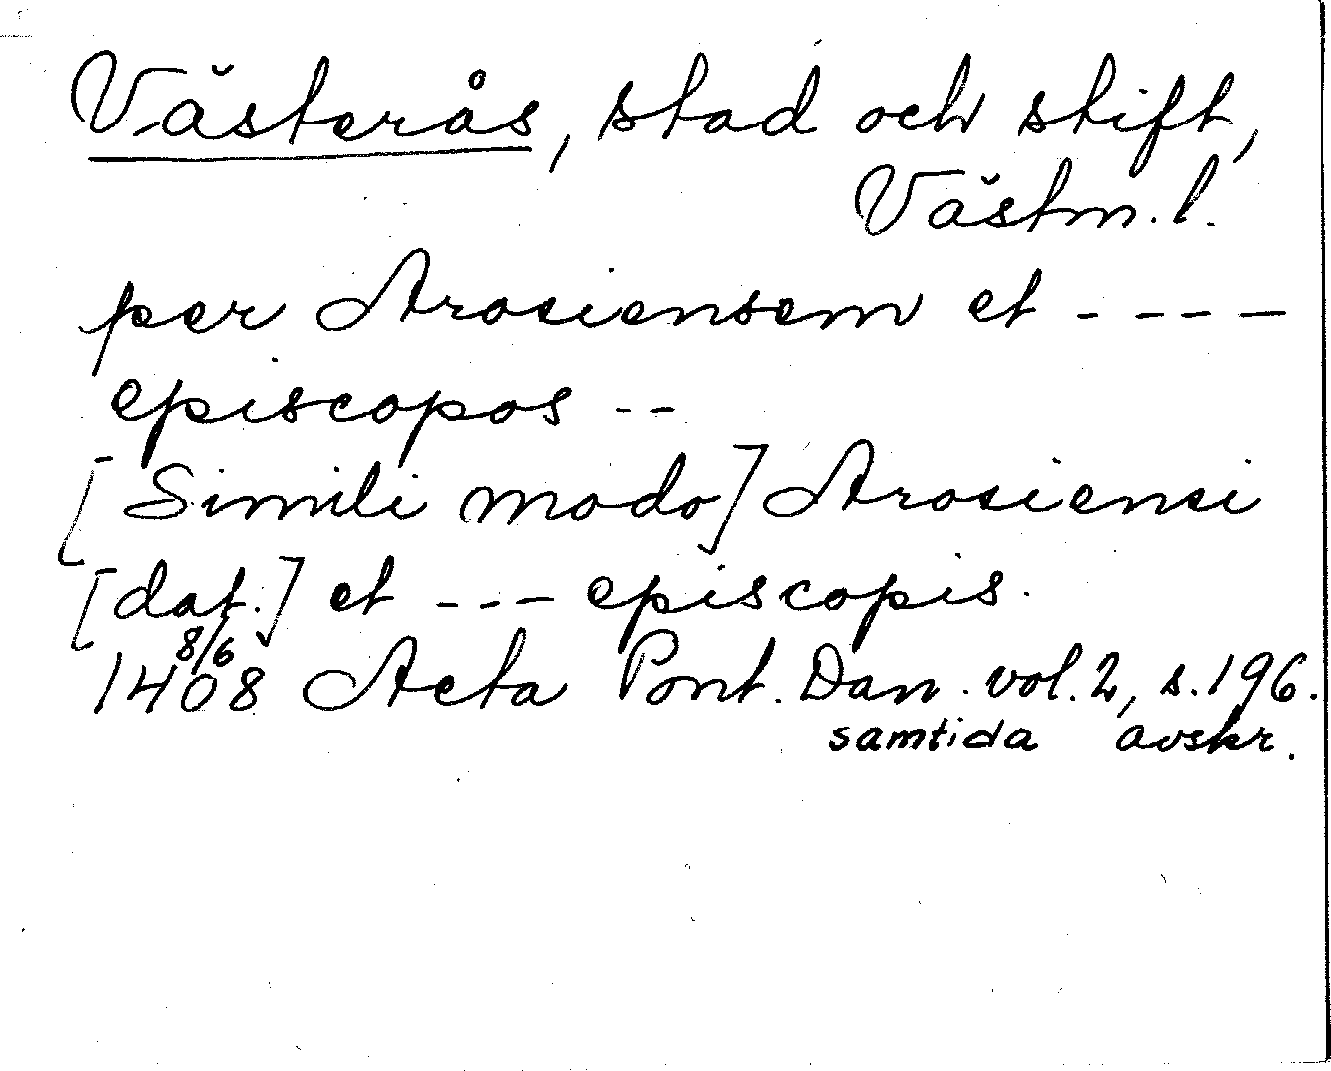 Västerås, stad och stift,
Västm. l.
per Arosiensem et - - - -
episcopos - -
[Simili modo] Arosiensi
[dat.] et - - - episcopis.
8/6
1408 Acta Pont. Dan. vol. 2, s. 196.
samtida avskr.